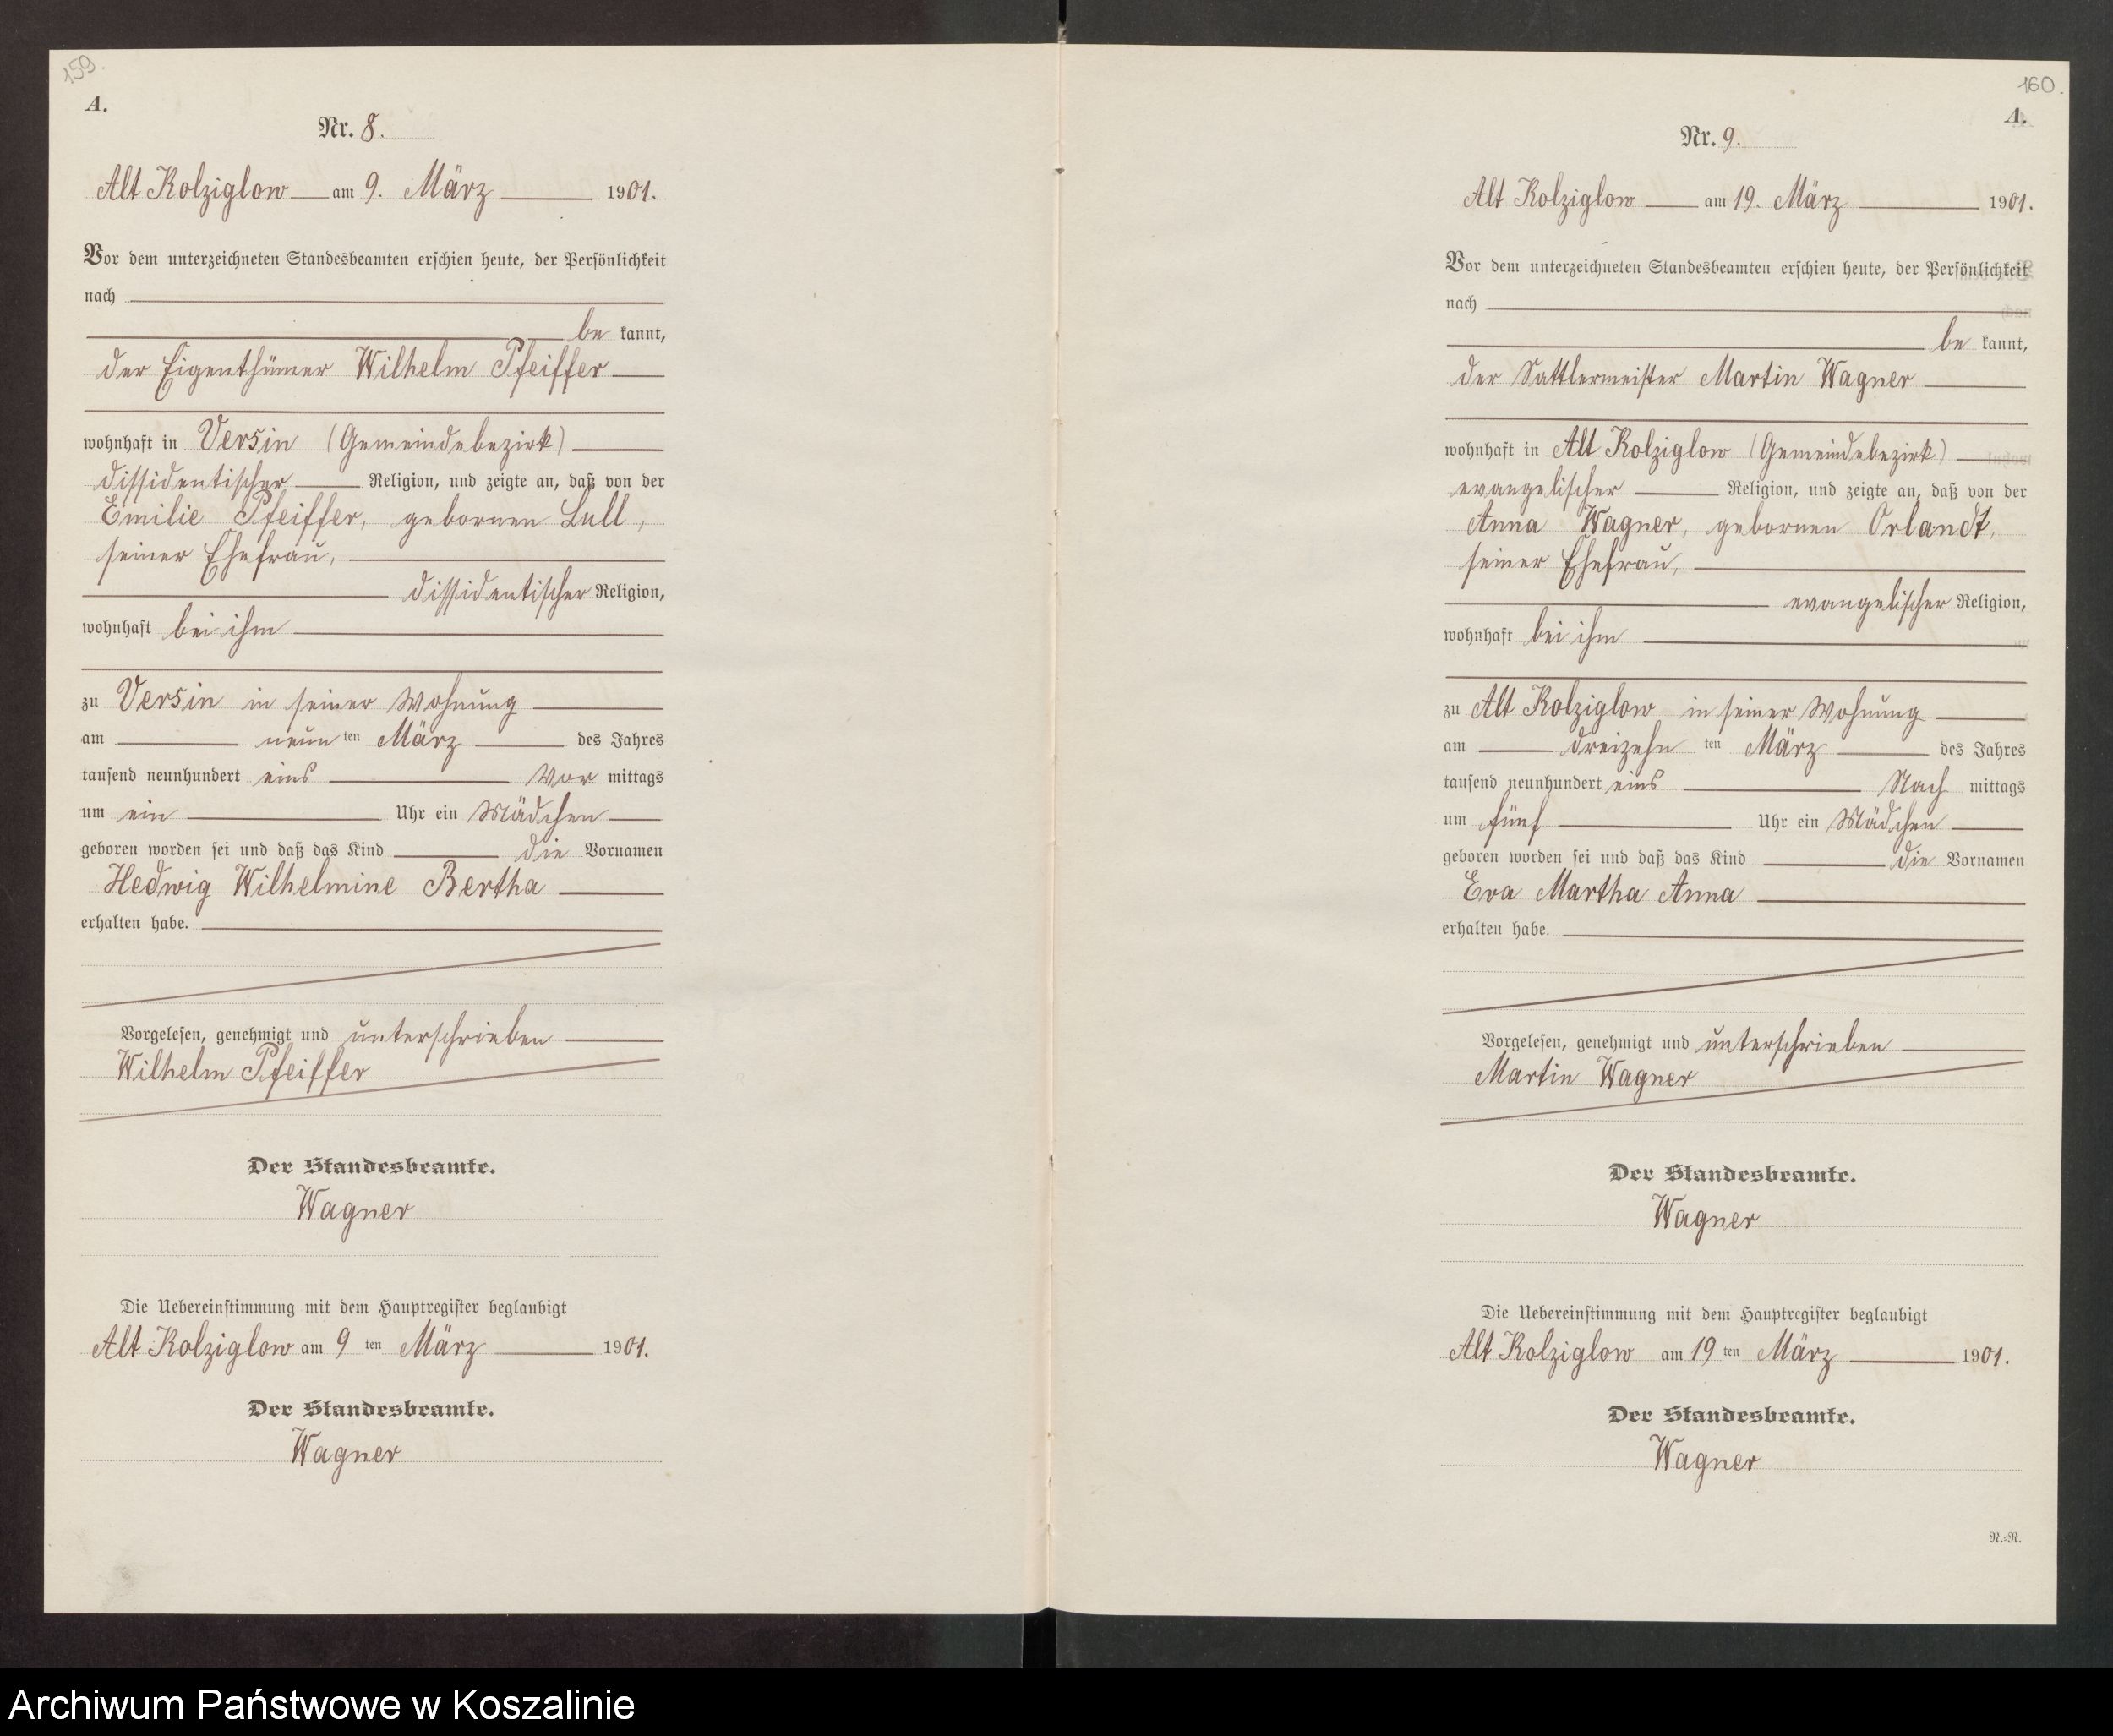 159.
A.
Nr. 8.
Alt Kolziglow am 9. März 1901.
Vor dem unterzeichneten Standesbeamten erschien heute, der Persönlichkeit
nach
be kannt,
der Eigenthümer Wilhelm Pfeiffer
wohnhaft in Versin (Gemeindebezirk)
dissidentischer Religion, und zeigte an, daß von der
Emilie Pfeiffer, gebornen Lull,
seiner Ehefrau,
dissidentischer Religion,
wohnhaft bei ihm
zu Versin in seiner Wohnung
am neun ten März des Jahres
tausend neunhundert eins Vor mittags
um ein Uhr ein Mädchen
geboren worden sei und daß das Kind die Vornamen
Hedwig Wilhelmine Bertha
erhalten habe.
Vorgelesen, genehmigt und unterschrieben
Wilhelm Pfeiffer
Der Standesbeamte.
Wagner
Die Uebereinstimmung mit dem Hauptregister beglaubigt
Alt Kolziglow am 9 ten März 1901.
Der Standesbeamte.
Wagner
160.
A.
Nr. 9.
Alt Kolziglow am 19. März 1901.
Vor dem unterzeichneten Standesbeamten erschien heute, der Persönlichkeit
nach
be kannt,
der Sattlermeister Martin Wagner
wohnhaft in Alt Kolziglow (Gemeindebezirk)
evangelischer Religion, und zeigte an, daß von der
Anna Wagner, gebornen Orlandt,
seiner Ehefrau,
evangelischer Religion,
wohnhaft bei ihm
zu Alt Kolziglow in seiner Wohnung
am dreizehn ten März des Jahres
tausend neunhundert eins Nach mittags
um fünf Uhr ein Mädchen
geboren worden sei und daß das Kind die Vornamen
Eva Martha Anna
erhalten habe.
Vorgelesen, genehmigt und unterschrieben
Martin Wagner
Der Standesbeamte.
Wagner
Die Uebereinstimmung mit dem Hauptregister beglaubigt
Alt Kolziglow am 19 ten März 1901.
Der Standesbeamte.
Wagner
N.=R.
Archiwum Państwowe w Koszalinie